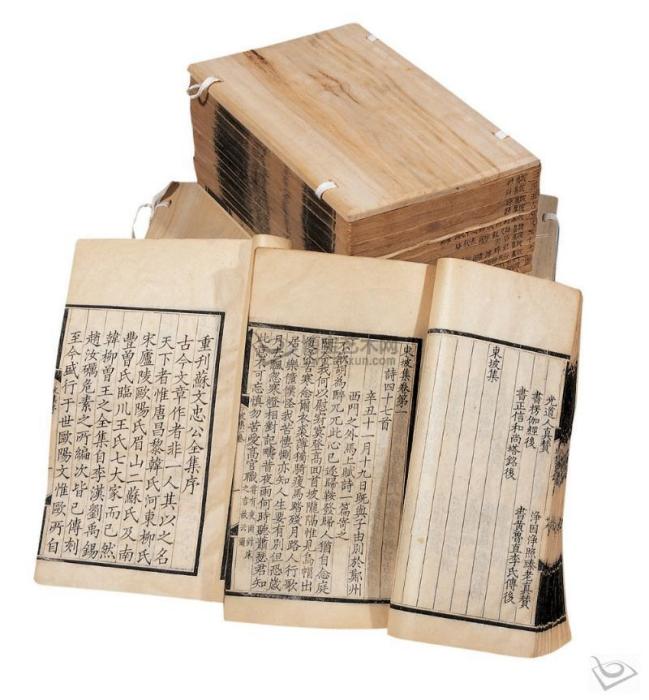 重刊蘇文忠公全集序
古今文章作者非一人其以之名
天下者惟唐昌黎韓氏河東柳氏
宋廬陵歐陽氏眉山二蘇氏及南
豐曾氏臨川王氏七大家而已然
韓柳曾王之全集自李漢劉禹錫
趙汝礪危素之所編次皆已傳刻
至今盛行于世歐陽文惟歐所自
東坡集卷第一
詩四十七首
辛丑十一月十九日既與子由別於鄭州
西門之外馬上賦詩一篇寄之
胡為醉兀兀此心已逐歸鞍發歸人猶自念庭
今我何以慰寂寞登高回首坡隴隔惟見烏帽出
復沒苦寒念爾衣裘薄獨騎瘦馬踏殘月路人行歌
居人樂僮僕怪我苦悽惻亦知人生要有別但恐歲
月去飄忽寒燈相對記疇昔夜雨何時聽蕭瑟君知
此意不可忘慎勿苦愛高官職 嘗有夜雨對床之言故云爾
光道人真贊 淨因淨照臻老真贊
書楞伽經後 書黃魯直李氏傳後
書正信和尚塔銘後
東坡集